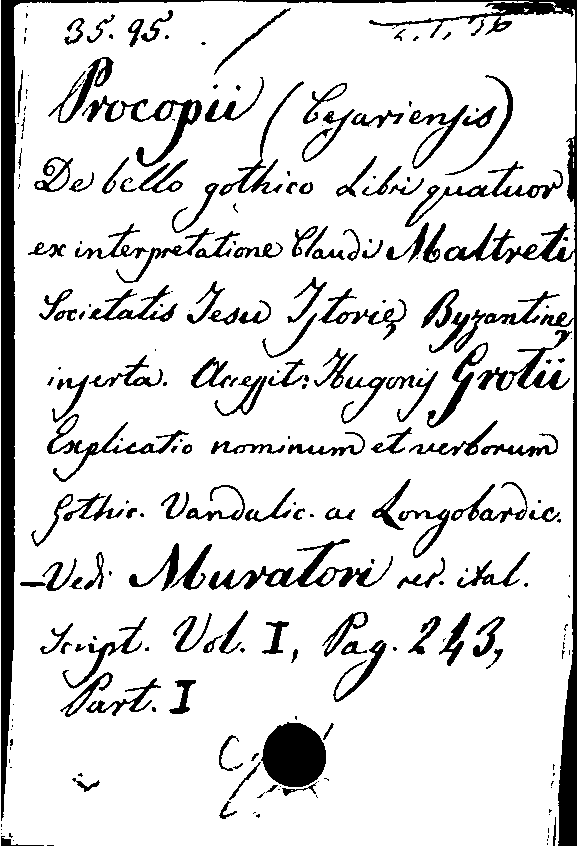 35. 95.
Procopii (Cęsariensis)
De bello gothico Libri quatuor
ex interpretatione Claudi Maltreti
Societatis Iesu Istorię Byzantinę
inserta. Accessit: Hugonis Grotii
Explicatio nominum et verborum
gothic. Vandalic. ac Longobardic.
-Vedi Muratori rer. ital.
Script. Vol. I, Pag. 243,
Part. I